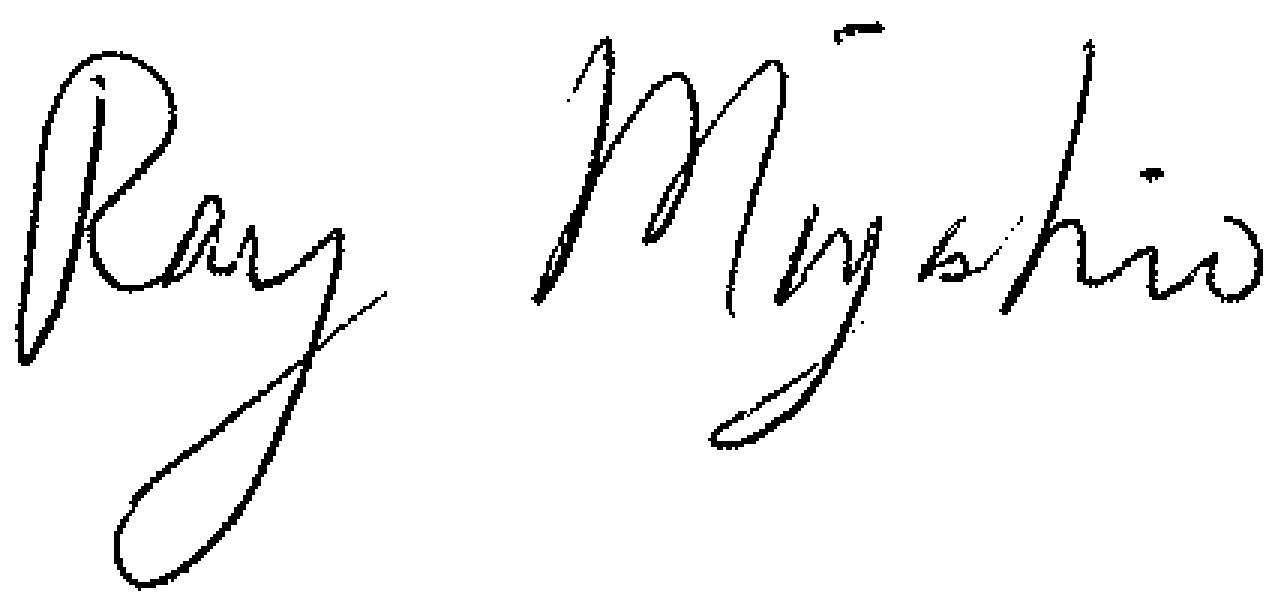 Ray Miyshio